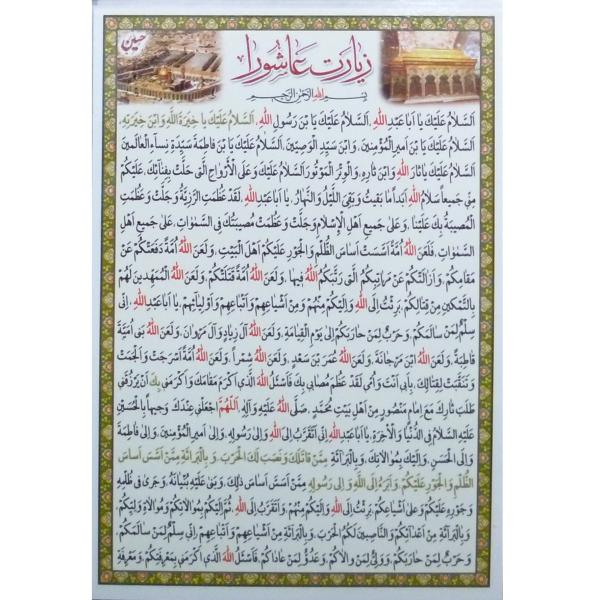 حسين
زيارت عاشورا
بسم الله الرحمن الرحيم
اَلسَّلامُ عَلَيْكَ يا اَبا عَبْدِاللهِ، اَلسَّلامُ عَلَيْكَ يَا بْنَ رَسُولِ اللهِ، اَلسَّلامُ عَلَيْكَ يا خِيَرَةَ اللَّهِ وَابْنَ خِيَرَتِهِ،
اَلسَّلامُ عَلَيْكَ يَا بْنَ اَميرِ الْمُؤْمِنينَ، وَابْنَ سَيِّدِ الْوَصِيّينَ، اَلسَّلامُ عَلَيْكَ يَا بْنَ فاطِمَةَ سَيِّدَةِ نِسآءِ الْعالَمينَ
اَلسَّلامُ عَلَيْكَ يا ثارَ اللهِ وَابْنَ ثارِهِ، وَالْوِتْرَ الْمَوْتُورَ اَلسَّلامُ عَلَيْكَ وَعَلَى الْاَرْواحِ الَّتى حَلَّتْ بِفِنآئِكَ، عَلَيْكُمْ
مِنّى جَميعاً سَلامُ اللهِ اَبَداً ما بَقيتُ وَبَقِىَ اللَّيْلُ وَالنَّهارُ، يا اَبا عَبْدِاللهِ، لَقَدْ عَظُمَتِ الرَّزِيَّةُ وَجَلَّتْ وَعَظُمَتِ
الْمُصيبَةُ بِكَ عَلَيْنا، وَعَلى جَميعِ اَهْلِ الْاِسْلامِ وَجَلَّتْ وَعَظُمَتْ مُصيبَتُكَ فِى السَّمواتِ، عَلى جَميعِ اَهْلِ
السَّمواتِ، فَلَعَنَ اللهُ اُمَّةً اَسَّسَتْ اَساسَ الظُّلْمِ وَالْجَوْرِ عَلَيْكُمْ اَهْلَ الْبَيْتِ، وَلَعَنَ اللهُ اُمَّةً دَفَعَتْكُمْ عَنْ
مَقامِكُمْ، وَاَزالَتْكُمْ عَنْ مَراتِبِكُمُ الَّتى رَتَّبَكُمُ اللهُ فيها، وَلَعَنَ اللهُ اُمَّةً قَتَلَتْكُمْ، وَلَعَنَ اللهُ الْمُمَهِّدينَ لَهُمْ
بِالتَّمْكينِ مِنْ قِتالِكُمْ، بَرِئْتُ اِلَى اللهِ وَاِلَيْكُمْ مِنْهُمْ وَمِنْ اَشْياعِهِمْ وَاَتْباعِهِمْ وَاَوْلِيآئِهِمْ، يا اَبا عَبْدِاللهِ، اِنّى
سِلْمٌ لِمَنْ سالَمَكُمْ، وَحَرْبٌ لِمَنْ حارَبَكُمْ اِلى يَوْمِ الْقِيامَةِ، وَلَعَنَ اللهُ آلَ زِيادٍ وَآلَ مَرْوانَ، وَلَعَنَ اللهُ بَنى اُمَيَّةَ
قاطِبَةً، وَلَعَنَ اللهُ ابْنَ مَرْجانَةَ، وَلَعَنَ اللهُ عُمَرَ بْنَ سَعْدٍ، وَلَعَنَ اللهُ شِمْراً، وَلَعَنَ اللهُ اُمَّةً اَسْرَجَتْ وَاَلْجَمَتْ
وَتَنَقَّبَتْ لِقِتالِكَ، بِاَبى اَنْتَ وَاُمّى لَقَدْ عَظُمَ مُصابى بِكَ فَاَسْئَلُ اللهَ الَّذى اَكْرَمَ مَقامَكَ وَاَكْرَمَنى بِكَ اَنْ يَرْزُقَنى
طَلَبَ ثارِكَ مَعَ اِمامٍ مَنْصُورٍ مِنْ اَهْلِ بَيْتِ مُحَمَّدٍ، صَلَّى اللهُ عَلَيْهِ وَآلِهِ، اَللّهُمَّ اجْعَلْنى عِنْدَكَ وَجيهاً بِالْحُسَيْنِ
عَلَيْهِ السَّلامُ فِى الدُّنْيا وَالْاخِرَةِ، يا اَبا عَبْدِاللهِ اِنّى اَتَقَرَّبُ اِلَى اللهِ، وَاِلى رَسُولِهِ، وَاِلى اَميرِ الْمُؤْمِنينَ، وَاِلى فاطِمَةَ
وَاِلَى الْحَسَنِ، وَاِلَيْكَ بِمُوالاتِكَ، وَبِالْبَرآئَةِ مِمَّنْ قاتَلَكَ وَنَصَبَ لَكَ الْحَرْبَ، وَبِالْبَرآئَةِ مِمَّنْ اَسَّسَ اَساسَ
الظُّلْمِ وَالْجَوْرِ عَلَيْكُمْ، وَاَبْرَءُ اِلَى اللهِ وَاِلى رَسُولِهِ مِمَّنْ اَسَّسَ اَساسَ ذلِكَ، وَبَنى عَلَيْهِ بُنْيانَهُ، وَجَرى فى ظُلْمِهِ
وَجَوْرِهِ عَلَيْكُمْ وَعَلى اَشْياعِكُمْ، بَرِئْتُ اِلَى اللهِ وَاِلَيْكُمْ مِنْهُمْ، وَاَتَقَرَّبُ اِلَى اللهِ، ثُمَّ اِلَيْكُمْ بِمُوالاتِكُمْ وَمُوالاةِ وَلِيِّكُمْ،
وَبِالْبَرآئَةِ مِنْ اَعْدآئِكُمْ وَالنّاصِبينَ لَكُمُ الْحَرْبَ، وَبِالْبَرآئَةِ مِنْ اَشْياعِهِمْ وَاَتْباعِهِمْ اِنّى سِلْمٌ لِمَنْ سالَمَكُمْ،
وَحَرْبٌ لِمَنْ حارَبَكُمْ، وَوَلِىٌّ لِمَنْ والاكُمْ، وَعَدُوٌّ لِمَنْ عاداكُمْ، فَاَسْئَلُ اللهَ الَّذى اَكْرَمَنى بِمَعْرِفَتِكُمْ، وَمَعْرِفَةِ